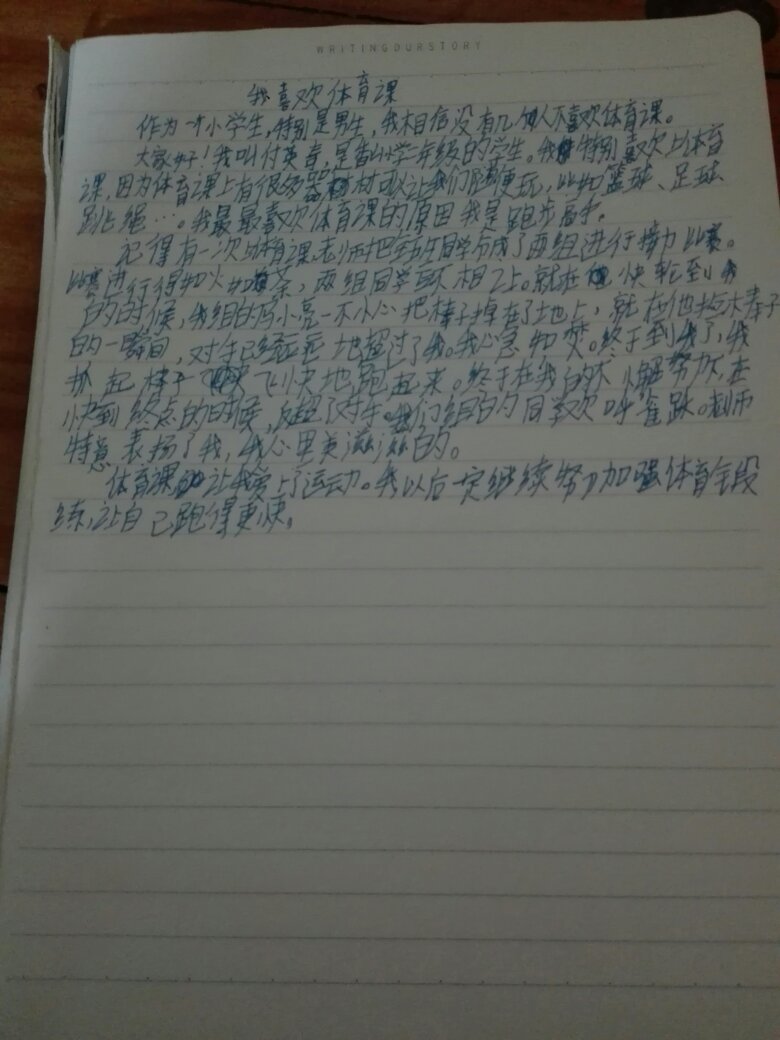 WRITINGOURSTORY
我喜欢体育课
作为一个小学生,特别是男生,我相信没有几个人不喜欢体育课。
大家好!我叫付英睿,是小学年级的学生。我特别喜欢上体育
课,因为体育课上有很多器材可以让我们随便玩,比如篮球、足球
跳绳…。我最最喜欢体育课的原因我是跑步高手。
记得有一次体育课,老师把全班同学分成了两组进行接力比赛。
比赛进行得如火如荼,两组同学不相上。就在快轮到我
的的时候,我组的冯小亮一不小心把棒子掉在了土地上,就在他捡木棒子
的一瞬间,对手已经远远地超过了我。我心急如焚。终于到我了,我
抓起棒子飞快地跑起来。终于在我的不懈努力下,在
快到终点的的时候,反超了对手。我们组的同学欢呼雀跃。老师
特意表扬了我,我心里美滋滋的。
体育课让我爱上了运动。我以后一定继续努力加强体育锻
练,让自己跑得更快。